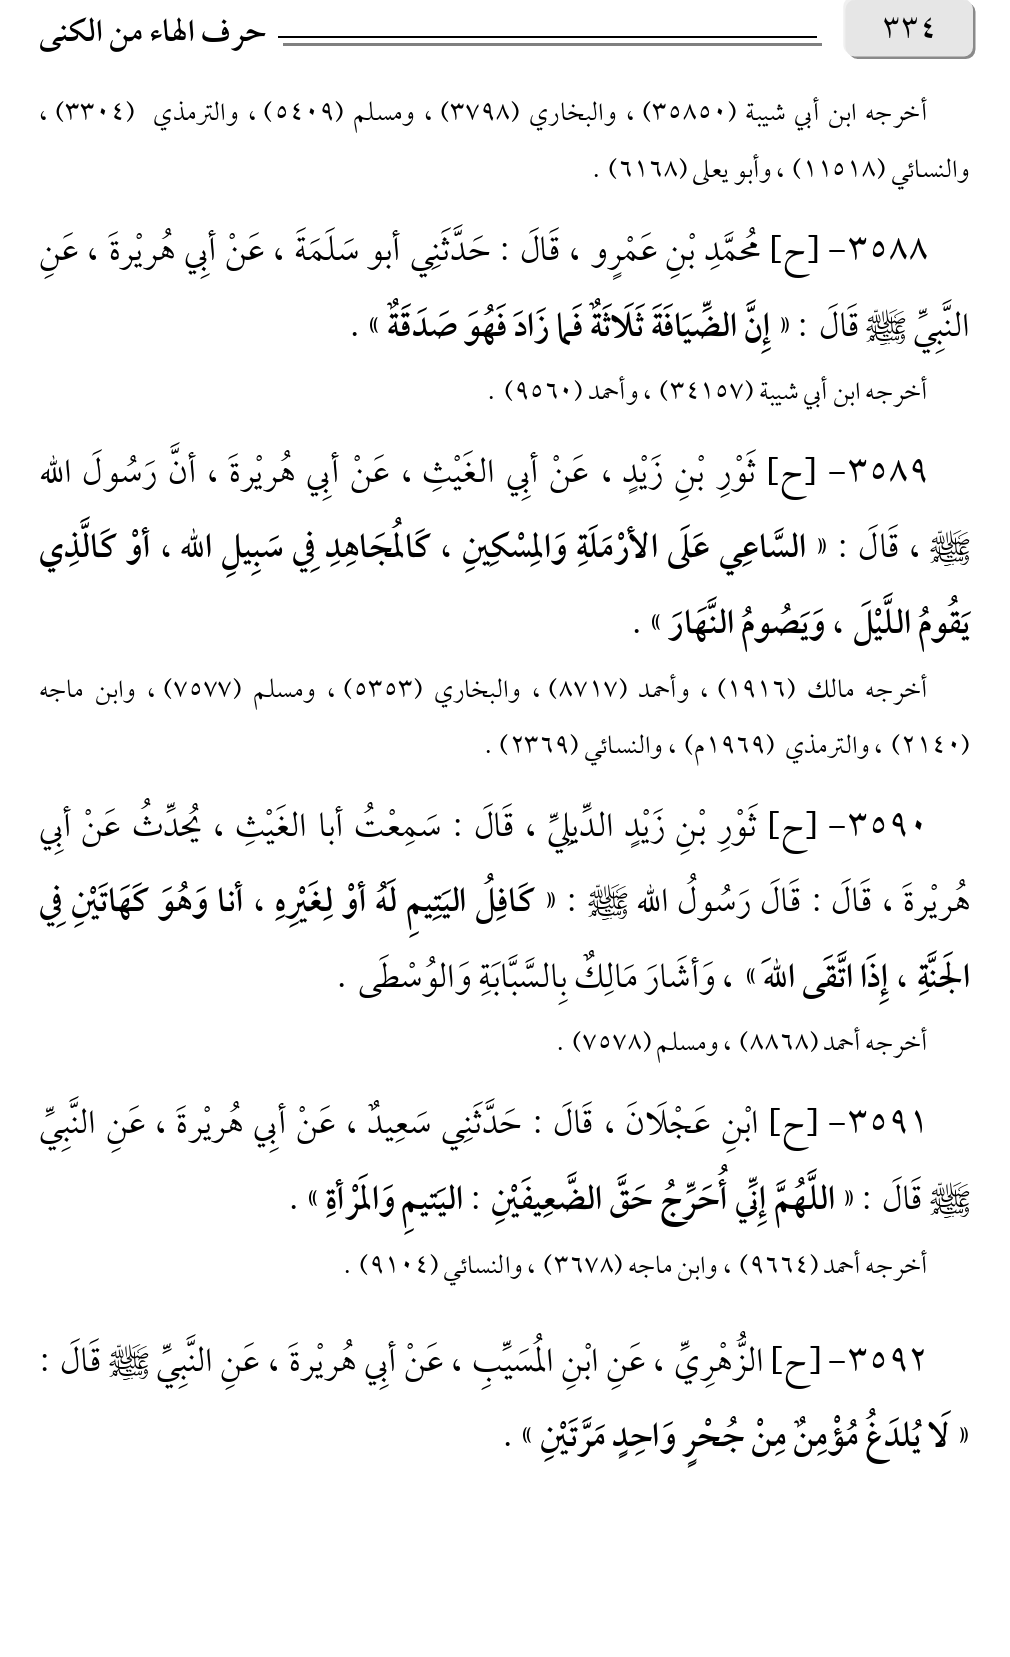 ٣٣٤
حرف الهاء من الكنى
أخرجه ابن أبي شيبة (٣٥٨٥٠) ، والبخاري (٣٧٩٨) ، ومسلم (٥٤٠٩) ، والترمذي (٣٣٠٤) ،
والنسائي (١١٥١٨) ، وأبو يعلى (٦١٦٨) .
٣٥٨٨- [ح] مُحمَّدِ بْنِ عَمْرٍو ، قَالَ : حَدَّثَنِي أبو سَلَمَةَ ، عَنْ أبِي هُريْرةَ ، عَنِ
النَّبِيِّ ﷺ قَالَ : « إِنَّ الضِّيَافَةَ ثَلَاثَةٌ فَما زَادَ فَهُوَ صَدَقَةٌ » .
أخرجه ابن أبي شيبة (٣٤١٥٧) ، وأحمد (٩٥٦٠) .
٣٥٨٩- [ح] ثَوْرِ بْنِ زَيْدٍ ، عَنْ أبِي الغَيْثِ ، عَنْ أبِي هُريْرةَ ، أنَّ رَسُولَ الله
ﷺ ، قَالَ : « السَّاعِي عَلَى الأرْمَلَةِ وَالمِسْكِينِ ، كَالمُجَاهِدِ فِي سَبِيلِ الله ، أوْ كَالَّذِي
يَقُومُ اللَّيْلَ ، وَيَصُومُ النَّهَارَ » .
أخرجه مالك (١٩١٦) ، وأحمد (٨٧١٧) ، والبخاري (٥٣٥٣) ، ومسلم (٧٥٧٧) ، وابن ماجه
(٢١٤٠) ، والترمذي (١٩٦٩م) ، والنسائي (٢٣٦٩) .
٣٥٩٠- [ح] ثَوْرِ بْنِ زَيْدٍ الدِّيلِيِّ ، قَالَ : سَمِعْتُ أبا الغَيْثِ ، يُحدِّثُ عَنْ أبِي
هُريْرةَ ، قَالَ : قَالَ رَسُولُ الله ﷺ : « كَافِلُ اليَتِيمِ لَهُ أوْ لِغَيْرِهِ ، أنا وَهُوَ كَهَاتَيْنِ فِي
الجَنَّةِ ، إِذَا اتَّقَى اللهَ » ، وَأشَارَ مَالِكٌ بِالسَّبَّابَةِ وَالوُسْطَى .
أخرجه أحمد (٨٨٦٨) ، ومسلم (٧٥٧٨) .
٣٥٩١- [ح] ابْنِ عَجْلَانَ ، قَالَ : حَدَّثَنِي سَعِيدٌ ، عَنْ أبِي هُريْرةَ ، عَنِ النَّبِيِّ
ﷺ قَالَ : « اللَّهُمَّ إِنِّي أُحَرِّجُ حَقَّ الضَّعِيفَيْنِ : اليَتيمِ وَالمَرْأةِ » .
أخرجه أحمد (٩٦٦٤) ، وابن ماجه (٣٦٧٨) ، والنسائي (٩١٠٤) .
٣٥٩٢- [ح] الزُّهْرِيِّ ، عَنِ ابْنِ المُسَيِّبِ ، عَنْ أبِي هُريْرةَ ، عَنِ النَّبِيِّ ﷺ قَالَ :
« لَا يُلدَغُ مُؤْمِنٌ مِنْ جُحْرٍ وَاحِدٍ مَرَّتَيْنِ » .